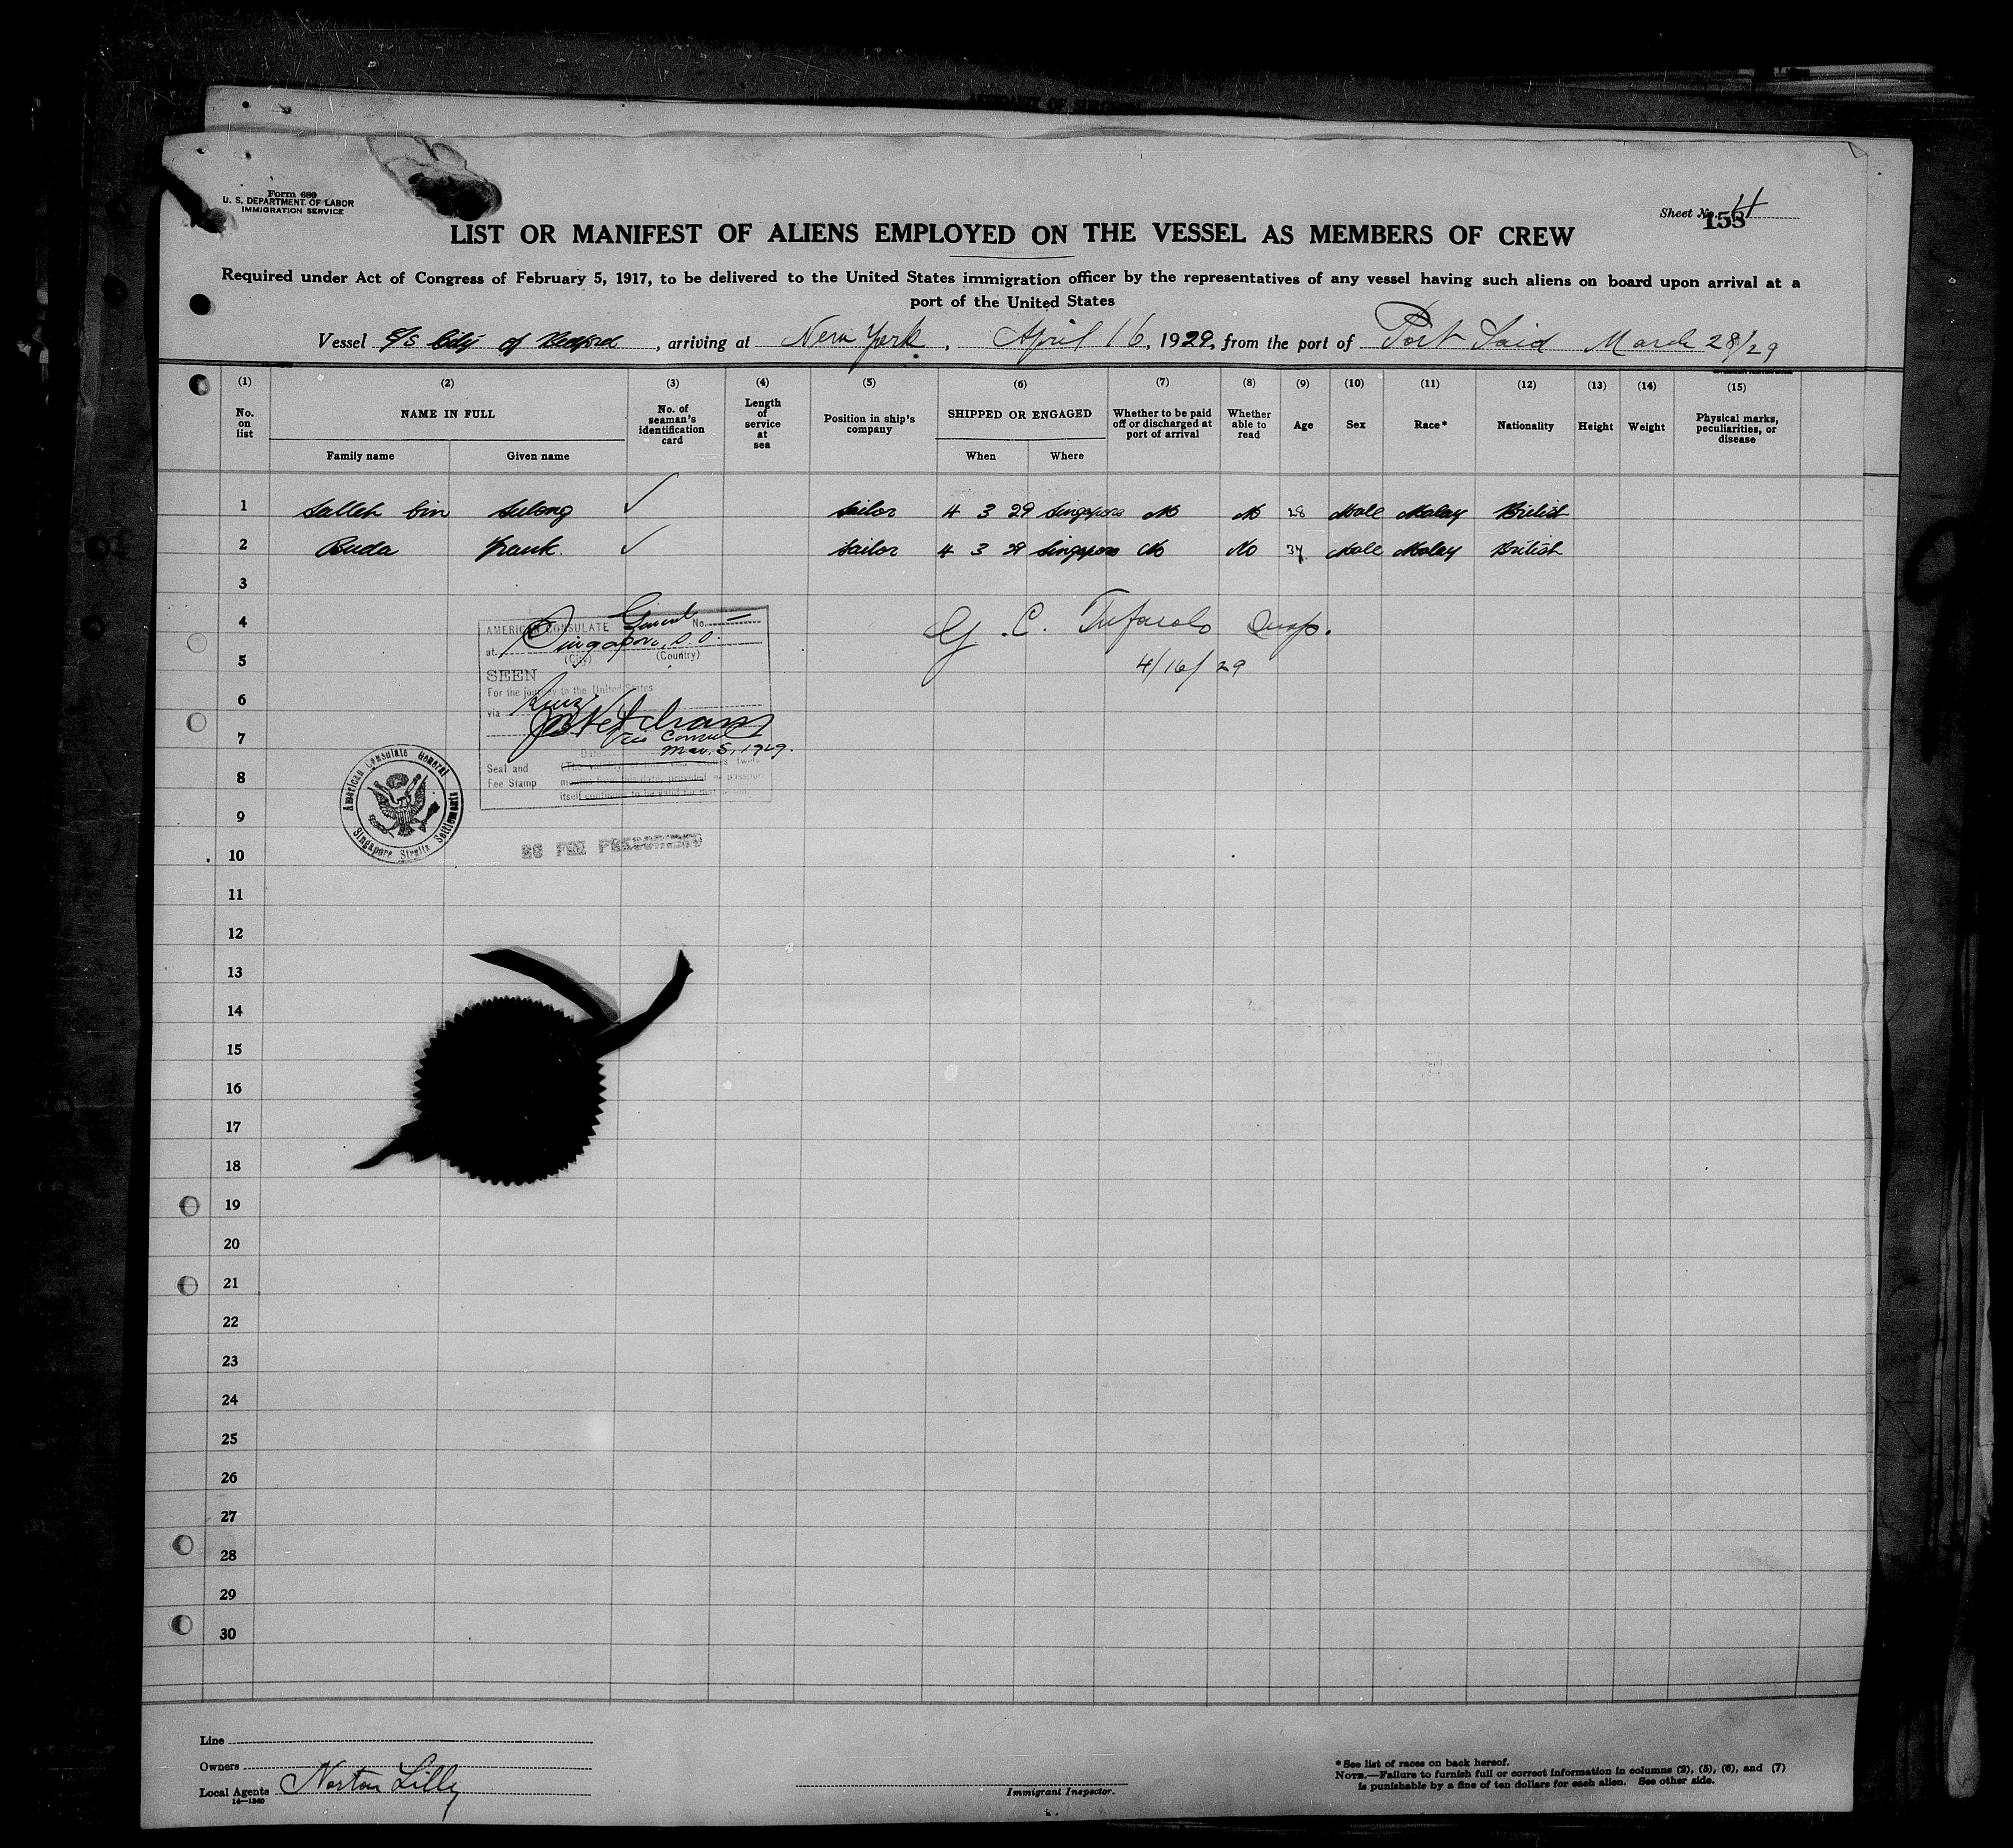 AFFIDAVIT OF SURGEON
Form 680
U. S. DEPARTMENT OF LABOR
IMMIGRATION SERVICE
Sheet No. 4
LIST OR MANIFEST OF ALIENS EMPLOYED ON THE VESSEL AS MEMBERS OF CREW
Required under Act of Congress of February 5, 1917, to be delivered to the United States immigration officer by the representatives of any vessel having such aliens on board upon arrival at a
port of the United States
Vessel S/S City of Bedford, arriving at New York, April 16, 1929, from the port of Port Said March 28/29
(1) (2) (3) (4) (5) (6) (7) (8) (9) (10) (11) (12) (13) (14) (15)
No. on list NAME IN FULL No. of seaman's identification card Length of service at sea Position in ship's company SHIPPED OR ENGAGED Whether to be paid off or discharged at port of arrival Whether able to read Age Sex Race* Nationality Height Weight Physical marks, peculiarities, or disease
Family name Given name When Where
1 Salleh bin Sulong ✓ Sailor 4 3 29 Singapore No No 28 Male Malay British
2 Buda Frank. ✓ Sailor 4 3 29 Singapore No No 34 Male Malay British
3
4
5
6
7
8
9
10
11
12
13
14
15
16
17
18
19
20
21
22
23
24
25
26
27
28
29
30
G. C. Insp.
4/16/29
AMERICAN CONSULATE General No.
at Singapore, S.S.
(City) (Country)
SEEN
For the journey to the United States
via
Vice Consul
Date Mar. 5, 1929.
Seal and
Fee Stamp
months from this date, provided passport
itself continues to be valid for that
American Consulate General
Singapore Straits Settlements
NO FEE PRESCRIBED
Line
Owners
Local Agents Norton Lilly
14—1240
Immigrant Inspector.
*See list of races on back hereof.
NOTE.—Failure to furnish full or correct information in columns (2), (5), (6), and (7)
is punishable by a fine of ten dollars for each alien. See other side.